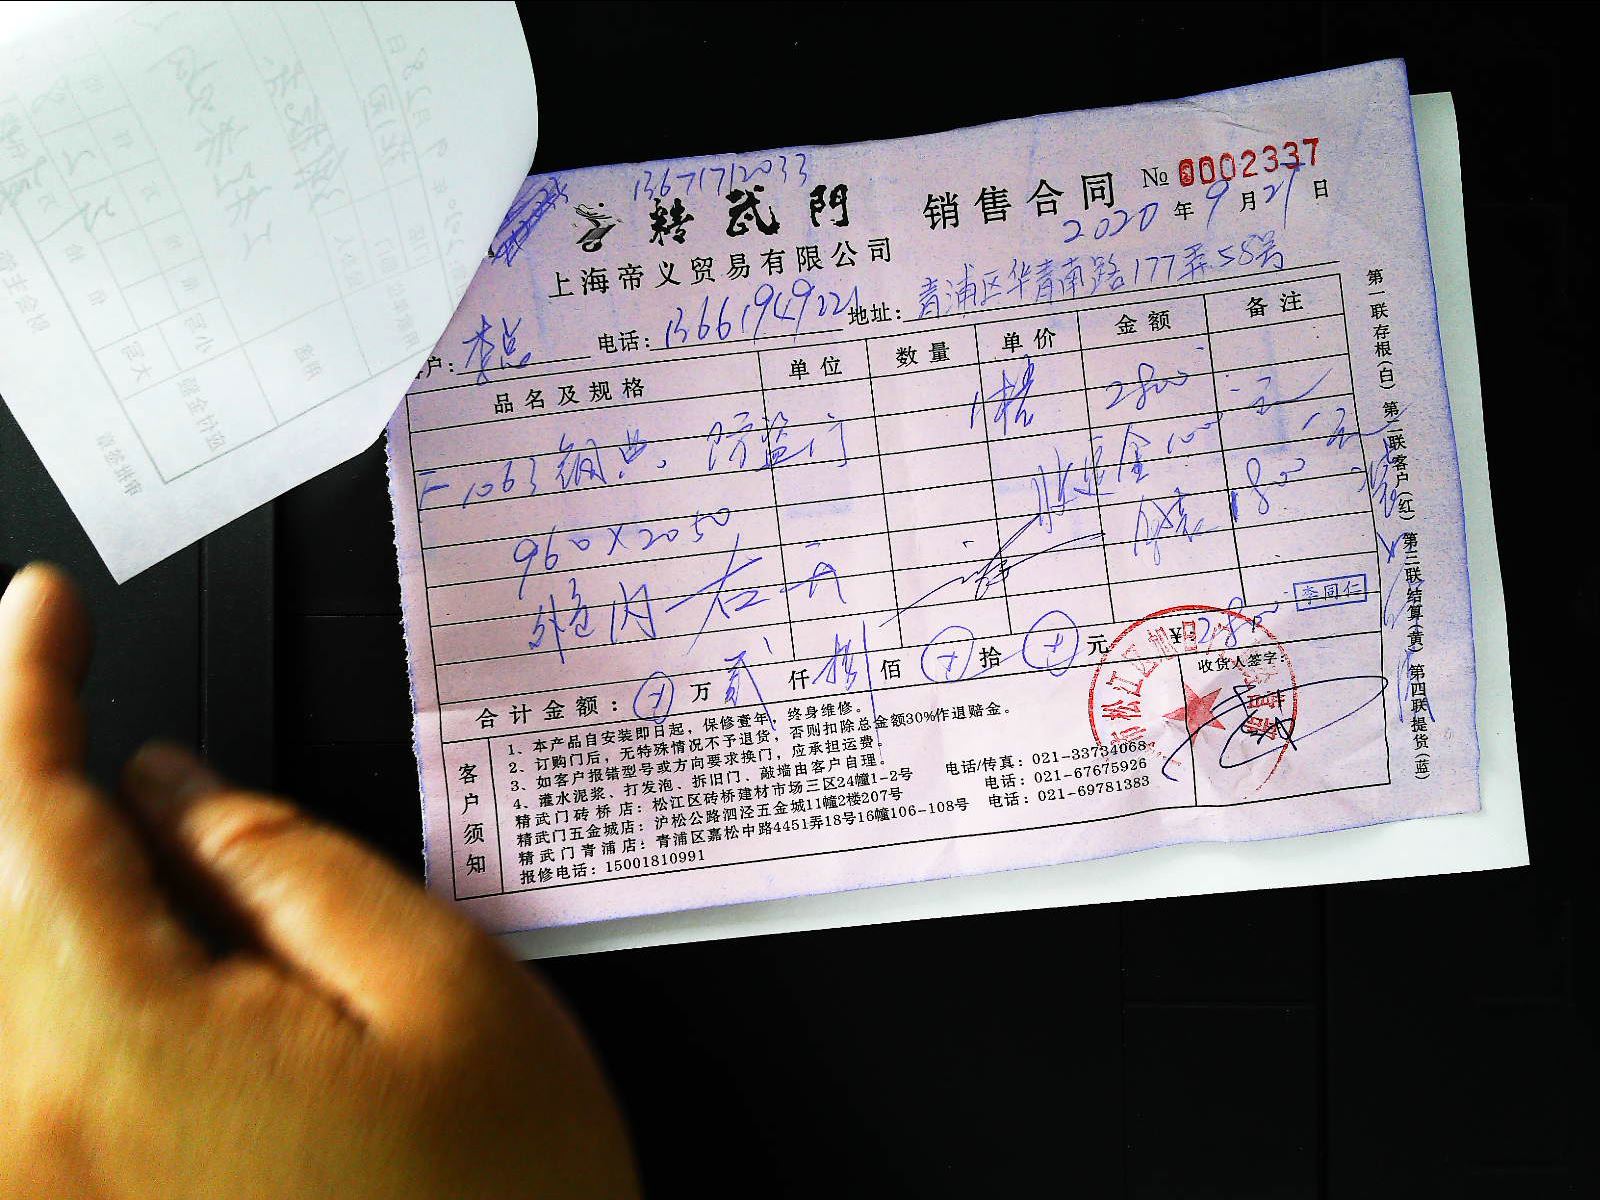 13671712033
精武門 销售合同 № 0002337
2020 年 9 月 27 日
上海帝义贸易有限公司
户: 李总 电话: 13661949221 地址: 青浦区华青南路177弄58号
品名及规格 单位 数量 单价 金额 备注
1063钢典. 防盗门 1樘 2800 元
收定金1000元
960×2050 1800
外包内右开
合计金额: 万 贰 仟 捌 佰 拾 元 ¥: 2800
李同仁
收货人签字:
客户须知
1、本产品自安装即日起,保修壹年,终身维修。
2、订购门后,无特殊情况不予退货,否则扣除总金额30%作退赔金。
3、如客户报错型号或方向要求换门,应承担运费。
4、灌水泥浆、打发泡、拆旧门、敲墙由客户自理。
精武门砖桥店:松江区砖桥建材市场三区24幢1-2号 电话/传真:021-33734068
精武门五金城店:沪松公路泗泾五金城11幢2楼207号 电话:021-67675926
精武门青浦店:青浦区嘉松中路4451弄18号16幢106-108号 电话:021-69781383
报修电话:15001810991
第一联存根(白) 第二联客户(红) 第三联结算(黄) 第四联提货(蓝)